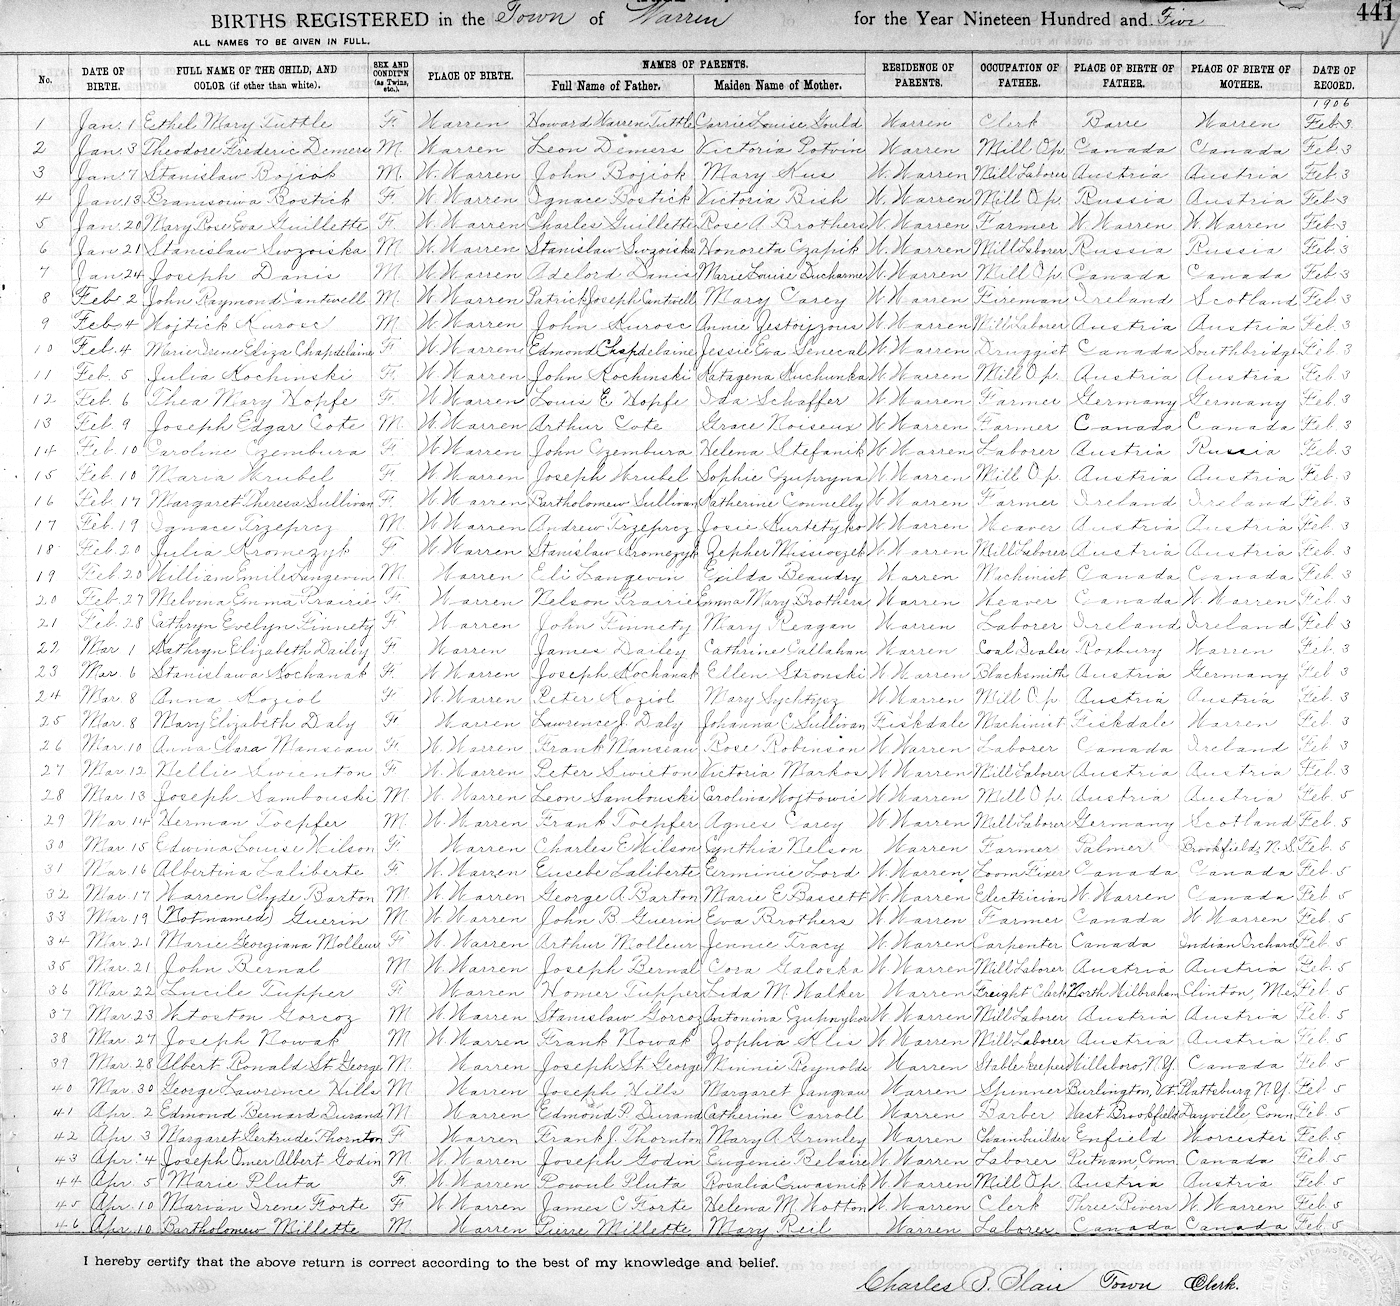 441
BIRTHS REGISTERED in the Town of Warren for the Year Nineteen Hundred and Five
ALL NAMES TO BE GIVEN IN FULL.
No. DATE OF BIRTH. FULL NAME OF THE CHILD, AND COLOR (if other than white). SEX AND CONDIT'N (as Twins, etc.). PLACE OF BIRTH. NAMES OF PARENTS. Full Name of Father. Maiden Name of Mother. RESIDENCE OF PARENTS. OCCUPATION OF FATHER. PLACE OF BIRTH OF FATHER. PLACE OF BIRTH OF MOTHER. DATE OF RECORD.
1906
1 Jan. 1 Ethel Mary Tuttle F. Warren Howard Warren Tuttle Carrie Louise Gould Warren Clerk Barre Warren Feb. 3
2 Jan. 3 Theodore Frederic Demers M. Warren Leon Demers Victoria Potvin Warren Mill Op. Canada Canada Feb. 3
3 Jan. 7 Stanislaw Bojiok M. W. Warren John Bojiok Mary Kus W. Warren Mill Laborer Austria Austria Feb. 3
4 Jan. 13 Bostick F. W. Warren Ignace Bostick Victoria Bish W. Warren Mill Op. Russia Austria Feb. 3
5 Jan. 20 Mary Rose Eva Guillette F. W. Warren Charles Guillette Rose A. Brothers W. Warren Farmer W. Warren W. Warren Feb. 3
6 Jan. 21 Stanislaw Swzoiska M. W. Warren Stanislaw Swzoiska Honoreta Czapik W. Warren Mill Laborer Russia Russia Feb. 3
7 Jan. 24 Joseph Danis M. W. Warren Adelord Danis Marie Louise Ducharme W. Warren Mill Op. Canada Canada Feb. 3
8 Feb. 2 John Raymond Cantwell M. W. Warren Patrick Joseph Cantwell Mary Carey W. Warren Fireman Ireland Scotland Feb. 3
9 Feb. 4 Wojtick Kurosc M. W. Warren John Kurosc Annie W. Warren Mill Laborer Austria Austria Feb. 3
10 Feb. 4 Marie Irene Eliza Chapdelaine F. W. Warren Edmond Chapdelaine Jessie Eva Senecal W. Warren Druggist Canada Southbridge Feb. 3
11 Feb. 5 Julia Kochinski F. W. Warren John Kochinski Katagena Kuchunka W. Warren Mill Op. Austria Austria Feb. 3
12 Feb. 6 Thea Mary Hopfe F. W. Warren Louis E. Hopfe Ida Schaffer W. Warren Farmer Germany Germany Feb. 3
13 Feb. 9 Joseph Edgar Cote M. W. Warren Arthur Cote Grace Noiseux W. Warren Farmer Canada Canada Feb. 3
14 Feb. 10 Caroline Czembura F. W. Warren John Czembura Helena Stefanik W. Warren Laborer Austria Russia Feb. 3
15 Feb. 10 Maria Wrubel F. W. Warren Joseph Wrubel Sophie Czupryna W. Warren Mill Op. Austria Austria Feb. 3
16 Feb. 17 Margaret Theresa Sullivan F. W. Warren Bartholomew Sullivan Katherine Connelly W. Warren Farmer Ireland Ireland Feb. 3
17 Feb. 19 Ignace Trzeprcz M. W. Warren Andrew Trzeprcz Josie W. Warren Weaver Austria Austria Feb. 3
18 Feb. 20 Julia Kromezyk F. W. Warren Stanislaw Kromezyk Zepher W. Warren Mill Laborer Austria Austria Feb. 3
19 Feb. 20 William Emile Langevin M. Warren Eli Langevin Exilda Beaudry Warren Machinist Canada Canada Feb. 3
20 Feb. 27 Melvina Emma Prairie F. Warren Nelson Prairie Emma Mary Brothers Warren Weaver Canada W. Warren Feb. 3
21 Feb. 28 Cathryn Evelyn Finnety F. Warren John Finnety Mary Reagan Warren Laborer Ireland Ireland Feb. 3
22 Mar. 1 Kathryn Elizabeth Dailey F. Warren James Dailey Cathrine Callahan Warren Coal Dealer Roxbury Warren Feb. 3
23 Mar. 6 Stanislawa Kochanak F. W. Warren Joseph Kochanak Ellen Stronski W. Warren Blacksmith Austria Germany Feb. 3
24 Mar. 8 Anna Koziol F. W. Warren Peter Koziol Mary W. Warren Mill Op. Austria Austria Feb. 3
25 Mar. 8 Mary Elizabeth Daly F. Warren Lawrence J. Daly Johanna C. Sullivan Fiskdale Machinist Fiskdale Warren Feb. 3
26 Mar. 10 Anna Clara Manseau F. W. Warren Frank Manseau Rose Robinson W. Warren Laborer Canada Ireland Feb. 3
27 Mar. 12 Nellie Swienton F. W. Warren Peter Swieton Victoria Markos W. Warren Mill Laborer Austria Austria Feb. 3
28 Mar. 13 Joseph Sambouski M. W. Warren Leon Sambouski Carolina Wojtowic W. Warren Mill Op. Austria Austria Feb. 5
29 Mar. 14 Herman Toepfer M. W. Warren Frank Toepfer Agnes Carey W. Warren Mill Laborer Germany Scotland Feb. 5
30 Mar. 15 Edwina Louise Wilson F. Warren Charles E. Wilson Cynthia Nelson Warren Farmer Palmer Brookfield, N. S. Feb. 5
31 Mar. 16 Albertina Laliberte F. W. Warren Eusebe Laliberte Erminie Lord W. Warren Loom Fixer Canada Canada Feb. 5
32 Mar. 17 Warren Clyde Barton M. W. Warren George A. Barton Marie E. Bassett W. Warren Electrician W. Warren Canada Feb. 5
33 Mar. 19 (Not named) Guerin M. W. Warren John B. Guerin Eva Brothers W. Warren Farmer Canada W. Warren Feb. 5
34 Mar. 21 Marie Georgiana Molleur F. W. Warren Arthur Molleur Jennie Tracy W. Warren Carpenter Canada Indian Orchard Feb. 5
35 Mar. 21 John Bernal M. W. Warren Joseph Bernal Cora Galoska W. Warren Mill Laborer Austria Austria Feb. 5
36 Mar. 22 Lucile Tupper F. Warren Homer Tupper Lida M. Walker Warren Freight Clerk North Wilbraham Clinton, Me. Feb. 5
37 Mar. 23 Wtoston Gorcoz M. W. Warren Stanislaw Gorcoz Antonina W. Warren Mill Laborer Austria Austria Feb. 5
38 Mar. 27 Joseph Nowak M. W. Warren Frank Nowak Zophia Klis W. Warren Mill Laborer Austria Austria Feb. 5
39 Mar. 28 Albert Ronald St. George M. Warren Joseph St. George Minnie Reynolds Warren Stable Keeper Willsboro, N.Y. Canada Feb. 5
40 Mar. 30 George Lawrence Hills M. Warren Joseph Hills Margaret Jangraw Warren Spinner Burlington, Vt. Plattsburg N.Y. Feb. 5
41 Apr. 2 Edmond Bernard Durand M. Warren Edmond P. Durand Catherine Carroll Warren Barber West Brookfield Dayville, Conn Feb. 5
42 Apr. 3 Margaret Gertrude Thornton F. Warren Frank J. Thornton Mary A. Grimley Warren Chainbuilder Enfield Worcester Feb. 5
43 Apr. 4 Joseph Omer Albert Godin M. W. Warren Joseph Godin Eugenie Belaire W. Warren Laborer Putnam, Conn. Canada Feb. 5
44 Apr. 5 Marie Pluta F. W. Warren Powul Pluta Rosalia W. Warren Mill Op. Austria Austria Feb. 5
45 Apr. 10 Marian Irene Forte F. W. Warren James C. Forte Helena M. Wotton W. Warren Clerk Three Rivers W. Warren Feb. 5
46 Apr. 10 Bartholomew Millette M. Warren Pierre Millette Mary Reil Warren Laborer Canada Canada Feb. 5
I hereby certify that the above return is correct according to the best of my knowledge and belief.
Charles B. Blair Town Clerk.